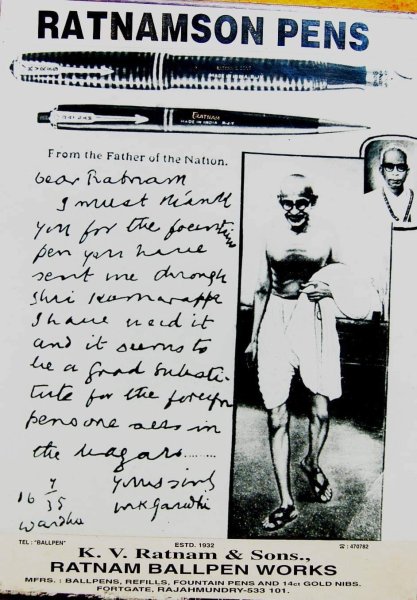 RATNAMSON PENS
RATNAM
MADE IN INDIA R.J.Y
From the Father of the Nation.
Dear Ratnam
I must thank
you for the fountain
pen you have
sent me through
Shri Kumarappa
I have used it
and it seems to
be a good substi-
tute for the foreign
pens one sees in
the bazars........
16 7/35 Yours sinly
Wardha MKGandhi
TEL : "BALLPEN" ESTD. 1932 ☎ : 470782
K. V. Ratnam & Sons.,
RATNAM BALLPEN WORKS
MFRS. : BALLPENS, REFILLS, FOUNTAIN PENS AND 14ct GOLD NIBS.
FORTGATE, RAJAHMUNDRY-533 101.